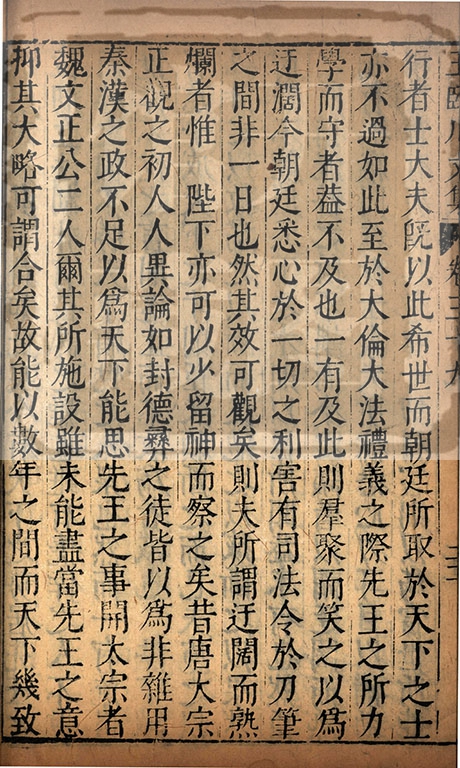 王臨川文集 卷三十九
行者士大夫既以此希世而朝廷所取於天下之士
亦不過如此至於大倫大法禮義之際先王之所力
學而守者葢不及也一有及此則羣聚而笑之以爲
迂濶今朝廷悉心於一切之利害有司法令於刀筆
之間非一日也然其效可觀矣則夫所謂迂闊而熟
爛者惟 陛下亦可以少留神而察之矣昔唐太宗
正觀之初人人異論如封德彝之徒皆以爲非雜用
秦漢之政不足以爲天下能思先王之事開太宗者
魏文正公二人爾其所施設雖未能盡當先王之意
抑其大略可謂合矣故能以數年之間而天下幾致